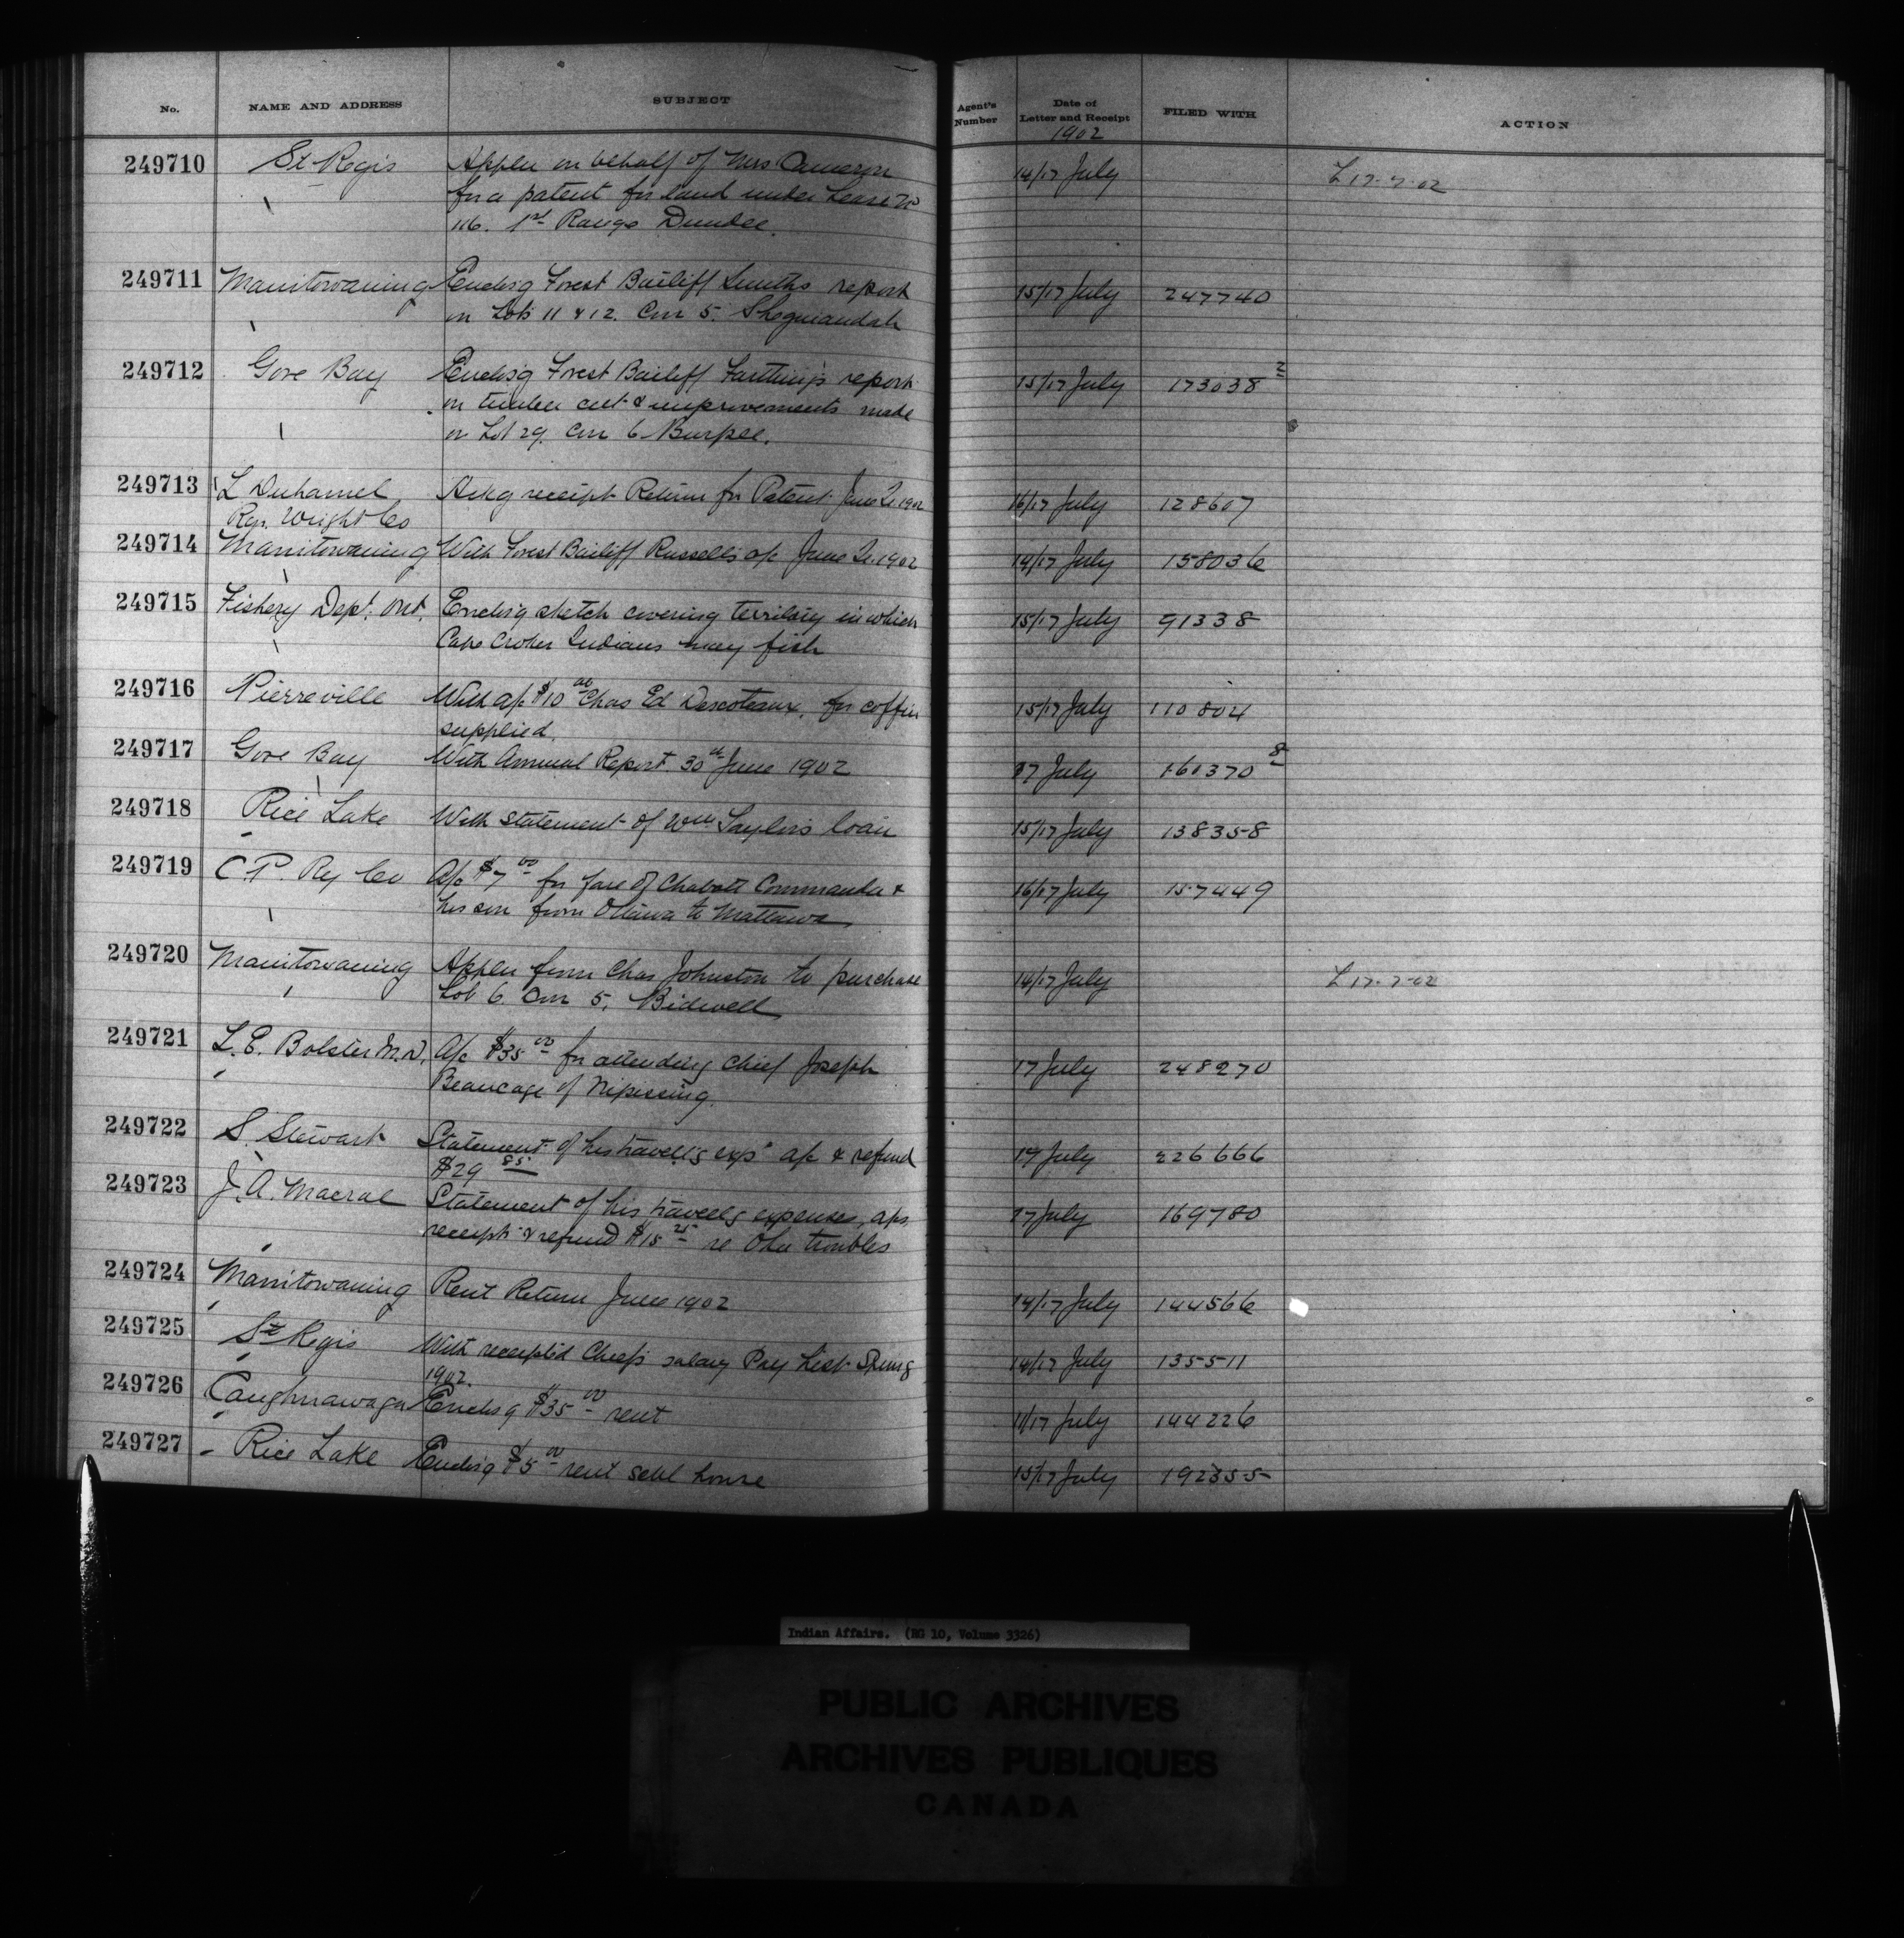 No. NAME AND ADDRESS SUBJECT Agent's Number Date of Letter and Receipt FILED WITH ACTION
1902
249710 St. Regis Applcn on behalf of Mrs Cameron 14/17 July L 17-7-02
for a patent for land under Lease No
116. 1st Range Dundee.
249711 Manitowaning Enclosg Forest Bailiff Smiths report 15/17 July 247740
on Lots 11 & 12. Con 5. Sheguiandah
249712 Gore Bay Enclosg Forest Bailiff Farthing's report 15/17 July 173038 2
on timber cut & improvements made
on Lot 29. Con 6 Burpee.
249713 L Duhamel Ackg receipt Return for Patent June Qr 1902 16/17 July 128607
Regr. Wright Co
249714 Manitowaning With Forest Bailiff Russell's a/c June Qr. 1902 14/17 July 158036
249715 Fishery Dept. Ont. Enclosg sketch covering territory in which 15/17 July 91338
Cape Croker Indians may fish
249716 Pierreville With a/c $10 00 Chas Ed Descoteaux, for coffin 15/17 July 110804
supplied.
249717 Gore Bay With Annual Report 30th June 1902 17 July 161370 8
249718 Rice Lake With statement of Wm Taylor's loan 15/17 July 138358
249719 C.P. Ry Co A/c $7 00 for fare of Chabott Commanda & 16/17 July 157449
his son from Ottawa to Mattawa
249720 Manitowaning Applcn from Chas Johnston to purchase 14/17 July L 17-7-02
Lot 6. Con 5. Bidwell
249721 L.E. Bolster M.D. A/c $35 00 for attending Chief Joseph 17 July 248270
Beaucage of Nipissing.
249722 S. Stewart Statement of his travellg exps a/c & refund 17 July 226666
$29 85
249723 J.A. Macrae Statement of his travellg expenses, a/cs 17 July 169780
receipts & refund $15 25 re Oka troubles
249724 Manitowaning Rent Return June 1902 14/17 July 144566
249725 St Regis With receipted Chiefs salary Pay List Spring 14/17 July 135511
1902.
249726 Caughnawaga Enclosg $35 00 rent 11/17 July 144226
249727 Rice Lake Enclosg $5 00 rent schl house 15/17 July 192355
Indian Affairs. (RG 10, Volume 3326)
PUBLIC ARCHIVES
ARCHIVES PUBLIQUES
CANADA